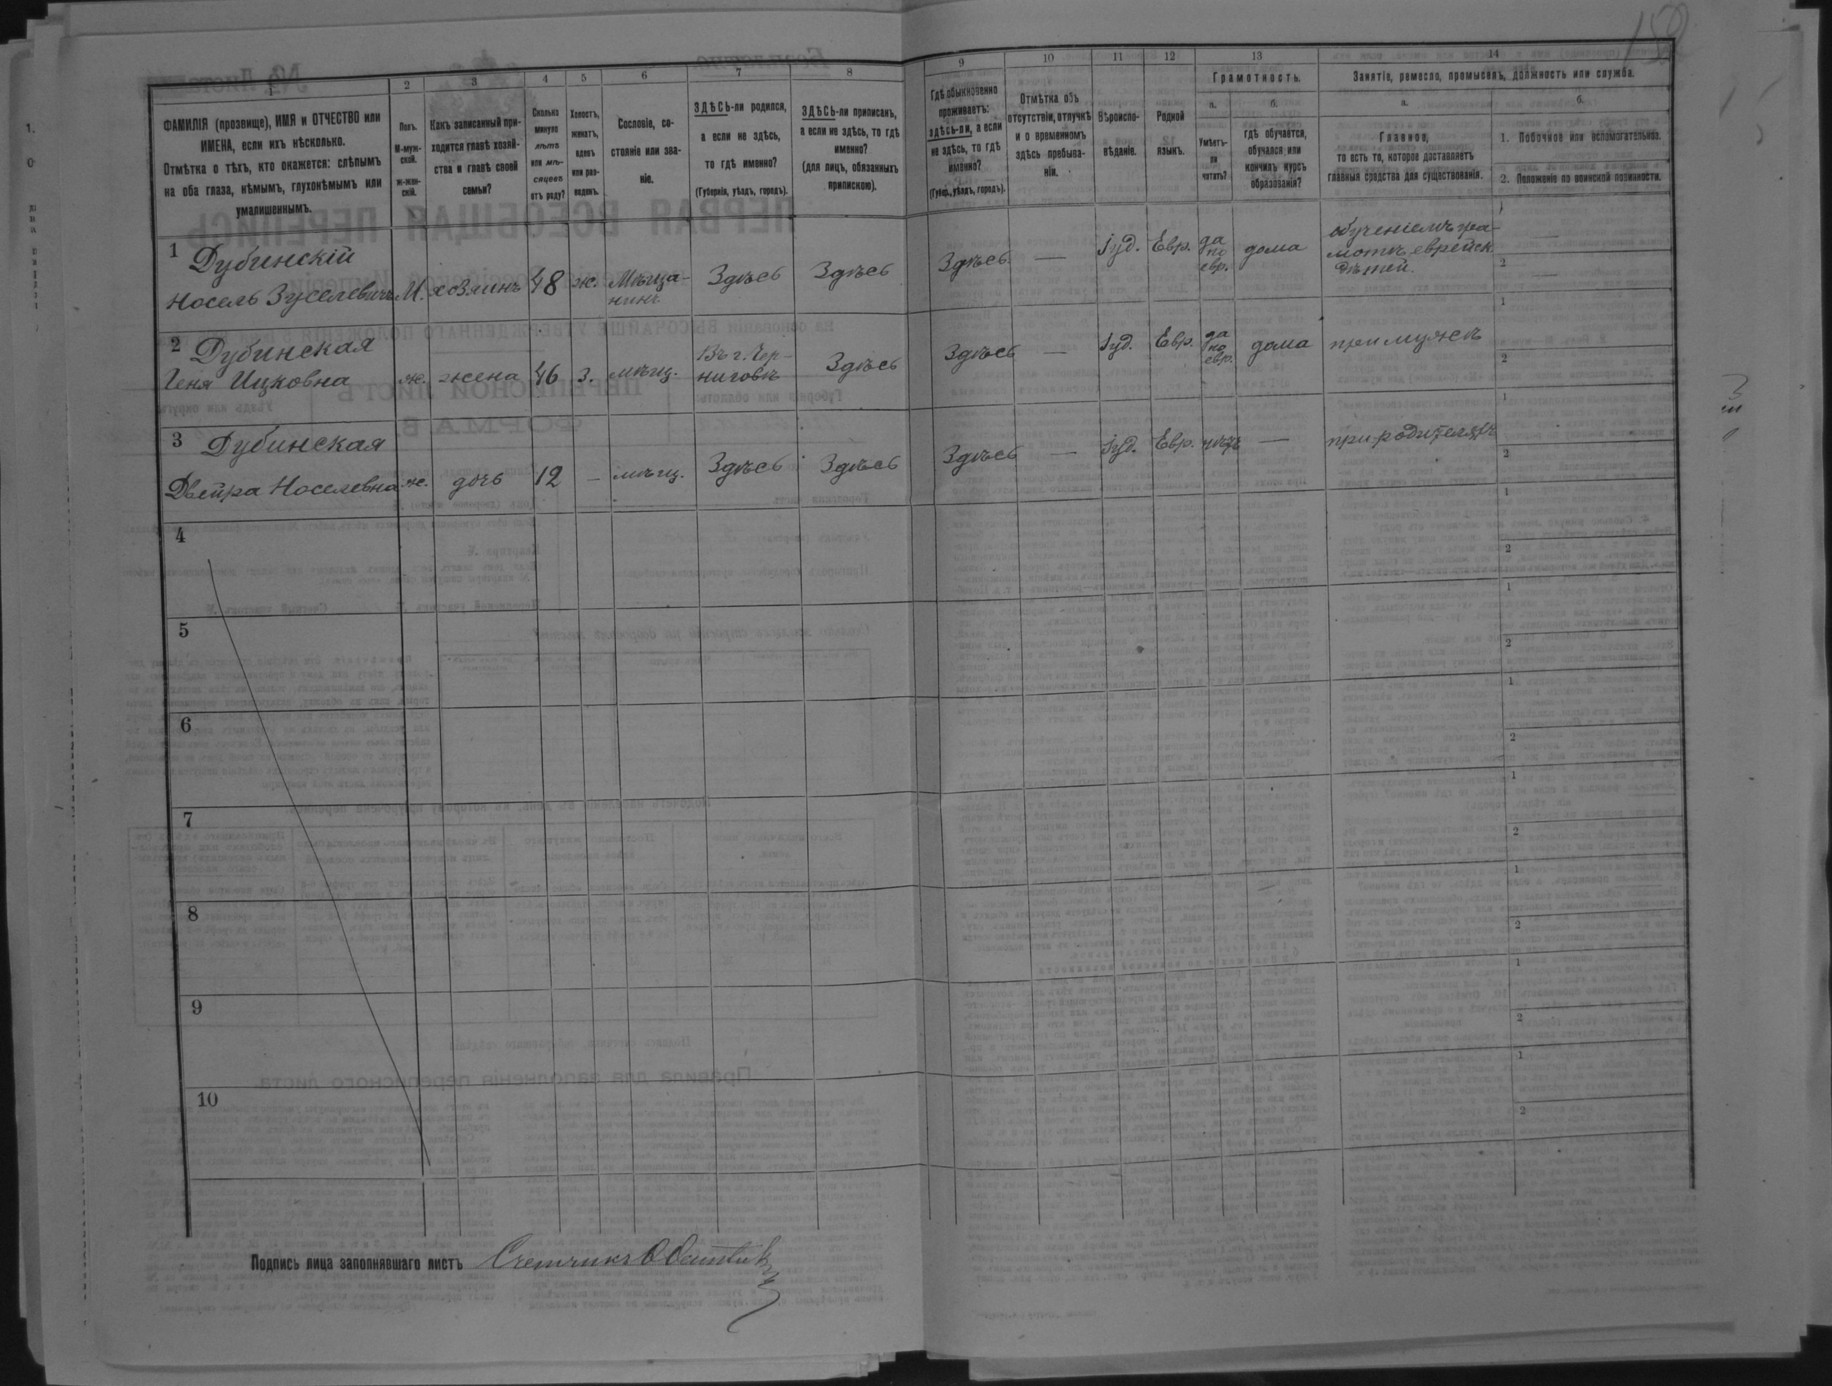 1 2 3 4 5 6 7 8 9 10 11 12 13 14
ФАМИЛІЯ (прозвище), ИМЯ и ОТЧЕСТВО или
ИМЕНА, если ихъ нѣсколько.
Отмѣтка о тѣхъ, кто окажется: слѣпымъ
на оба глаза, нѣмымъ, глухонѣмымъ или
умалишеннымъ.
Полъ.
М-муж-
ской.
ж-жен-
скій.
Какъ записанный при-
ходится главѣ хозяй-
ства и главѣ своей
семьи?
Сколько
минуло
лѣтъ
или мѣ-
сяцевъ
отъ роду?
Холостъ,
женатъ,
вдовъ
или раз-
веденъ.
Сословіе, со-
стояніе или зва-
ніе.
ЗДѢСЬ-ли родился,
а если не здѣсь,
то гдѣ именно?
(Губернія, уѣздъ, городъ).
ЗДѢСЬ-ли приписанъ,
а если не здѣсь, то гдѣ
именно?
(для лицъ, обязанныхъ
припискою).
Гдѣ обыкновенно
проживаетъ:
здѣсь-ли, а если
не здѣсь, то гдѣ
именно?
(Губер., уѣздъ, городъ).
Отмѣтка объ
отсутствіи, отлучкѣ
и о временномъ
здѣсь пребыва-
ніи.
Вѣроиспо-
вѣданіе.
Родной
языкъ.
Грамотность.
а.
Умѣетъ-
ли
читать?
б.
гдѣ обучается,
обучался или
кончилъ курсъ
образованія?
Занятіе, ремесло, промыселъ, должность или служба.
а.
Главное,
то есть то, которое доставляетъ
главныя средства для существованія.
б.
1. Побочное или вспомогательное.
2. Положеніе по воинской повинности.
1 Дубинскій
Носель Зуселевичъ М. хозяинъ 48 ж. Мѣща-
нинъ Здѣсь Здѣсь Здѣсь — Іуд. Евр. да
по
евр. дома обученіемъ гра-
мотѣ еврейск.
дѣтей 1 —
2 —
2 Дубинская
Геня Ицковна ж. жена 46 з. мѣщ. Въ г. Чер-
ниговѣ Здѣсь Здѣсь — Іуд. Евр. да
по
евр. дома при мужѣ 1
2
3 Дубинская
Двейра Носелевна ж. дочь 12 — мѣщ. Здѣсь Здѣсь Здѣсь — Іуд. Евр. нѣтъ — при родителяхъ 1
2
4 1
2
5 1
2
6 1
2
7 1
2
8 1
2
9 1
2
10 1
2
Подпись лица заполнявшаго листъ Счетчикъ